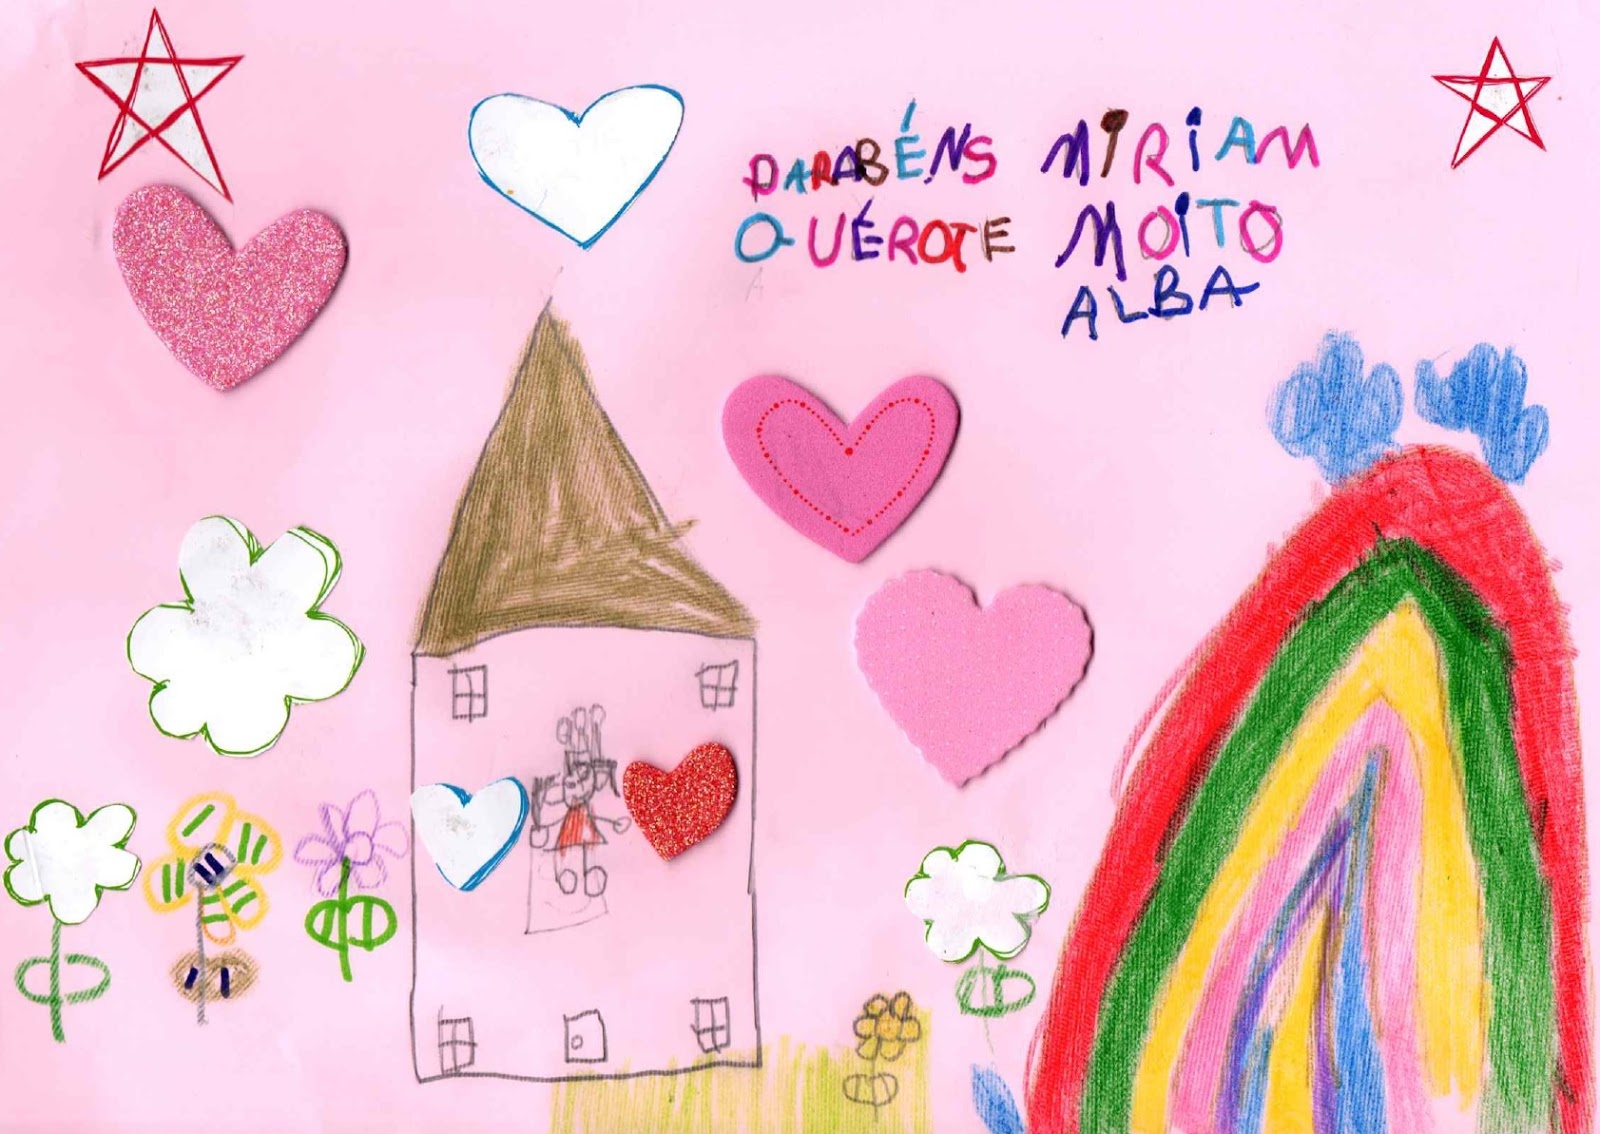 PARABÉNS MIRIAM
QUÉROTE MOITO
ALBA